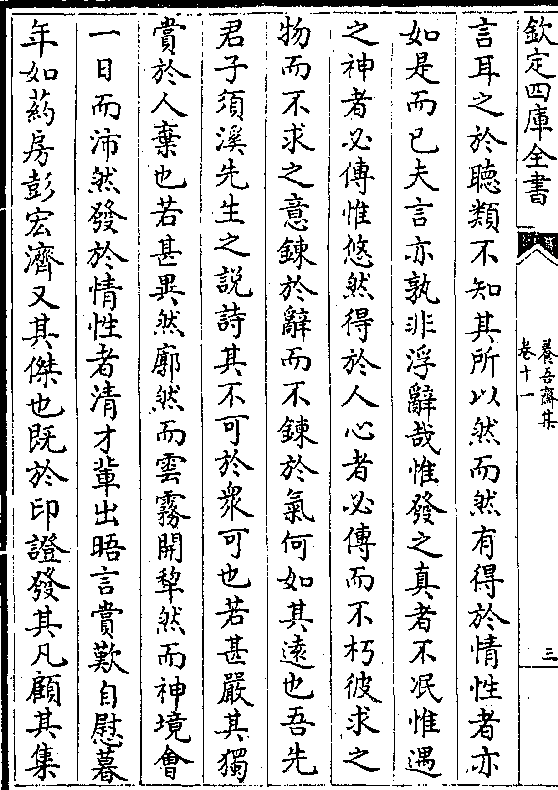 欽定四庫全書
養吾齋集
卷十一
三
言耳之於聽類不知其所以然而然有得於情性者亦
如是而已夫言亦孰非浮辭哉惟發之真者不泯惟遇
之神者必傳惟悠然得於人心者必傳而不朽彼求之
物而不求之意鍊於辭而不鍊於氣何如其遠也吾先
君子須溪先生之説詩其不可於衆可也若甚嚴其獨
賞於人棄也若甚異然廓然而雲霧開犂然而神境會
一日而沛然發於情性者清才輩出晤言賞歎自慰暮
年如葯房彭宏濟又其傑也既於印證發其凡顧其集